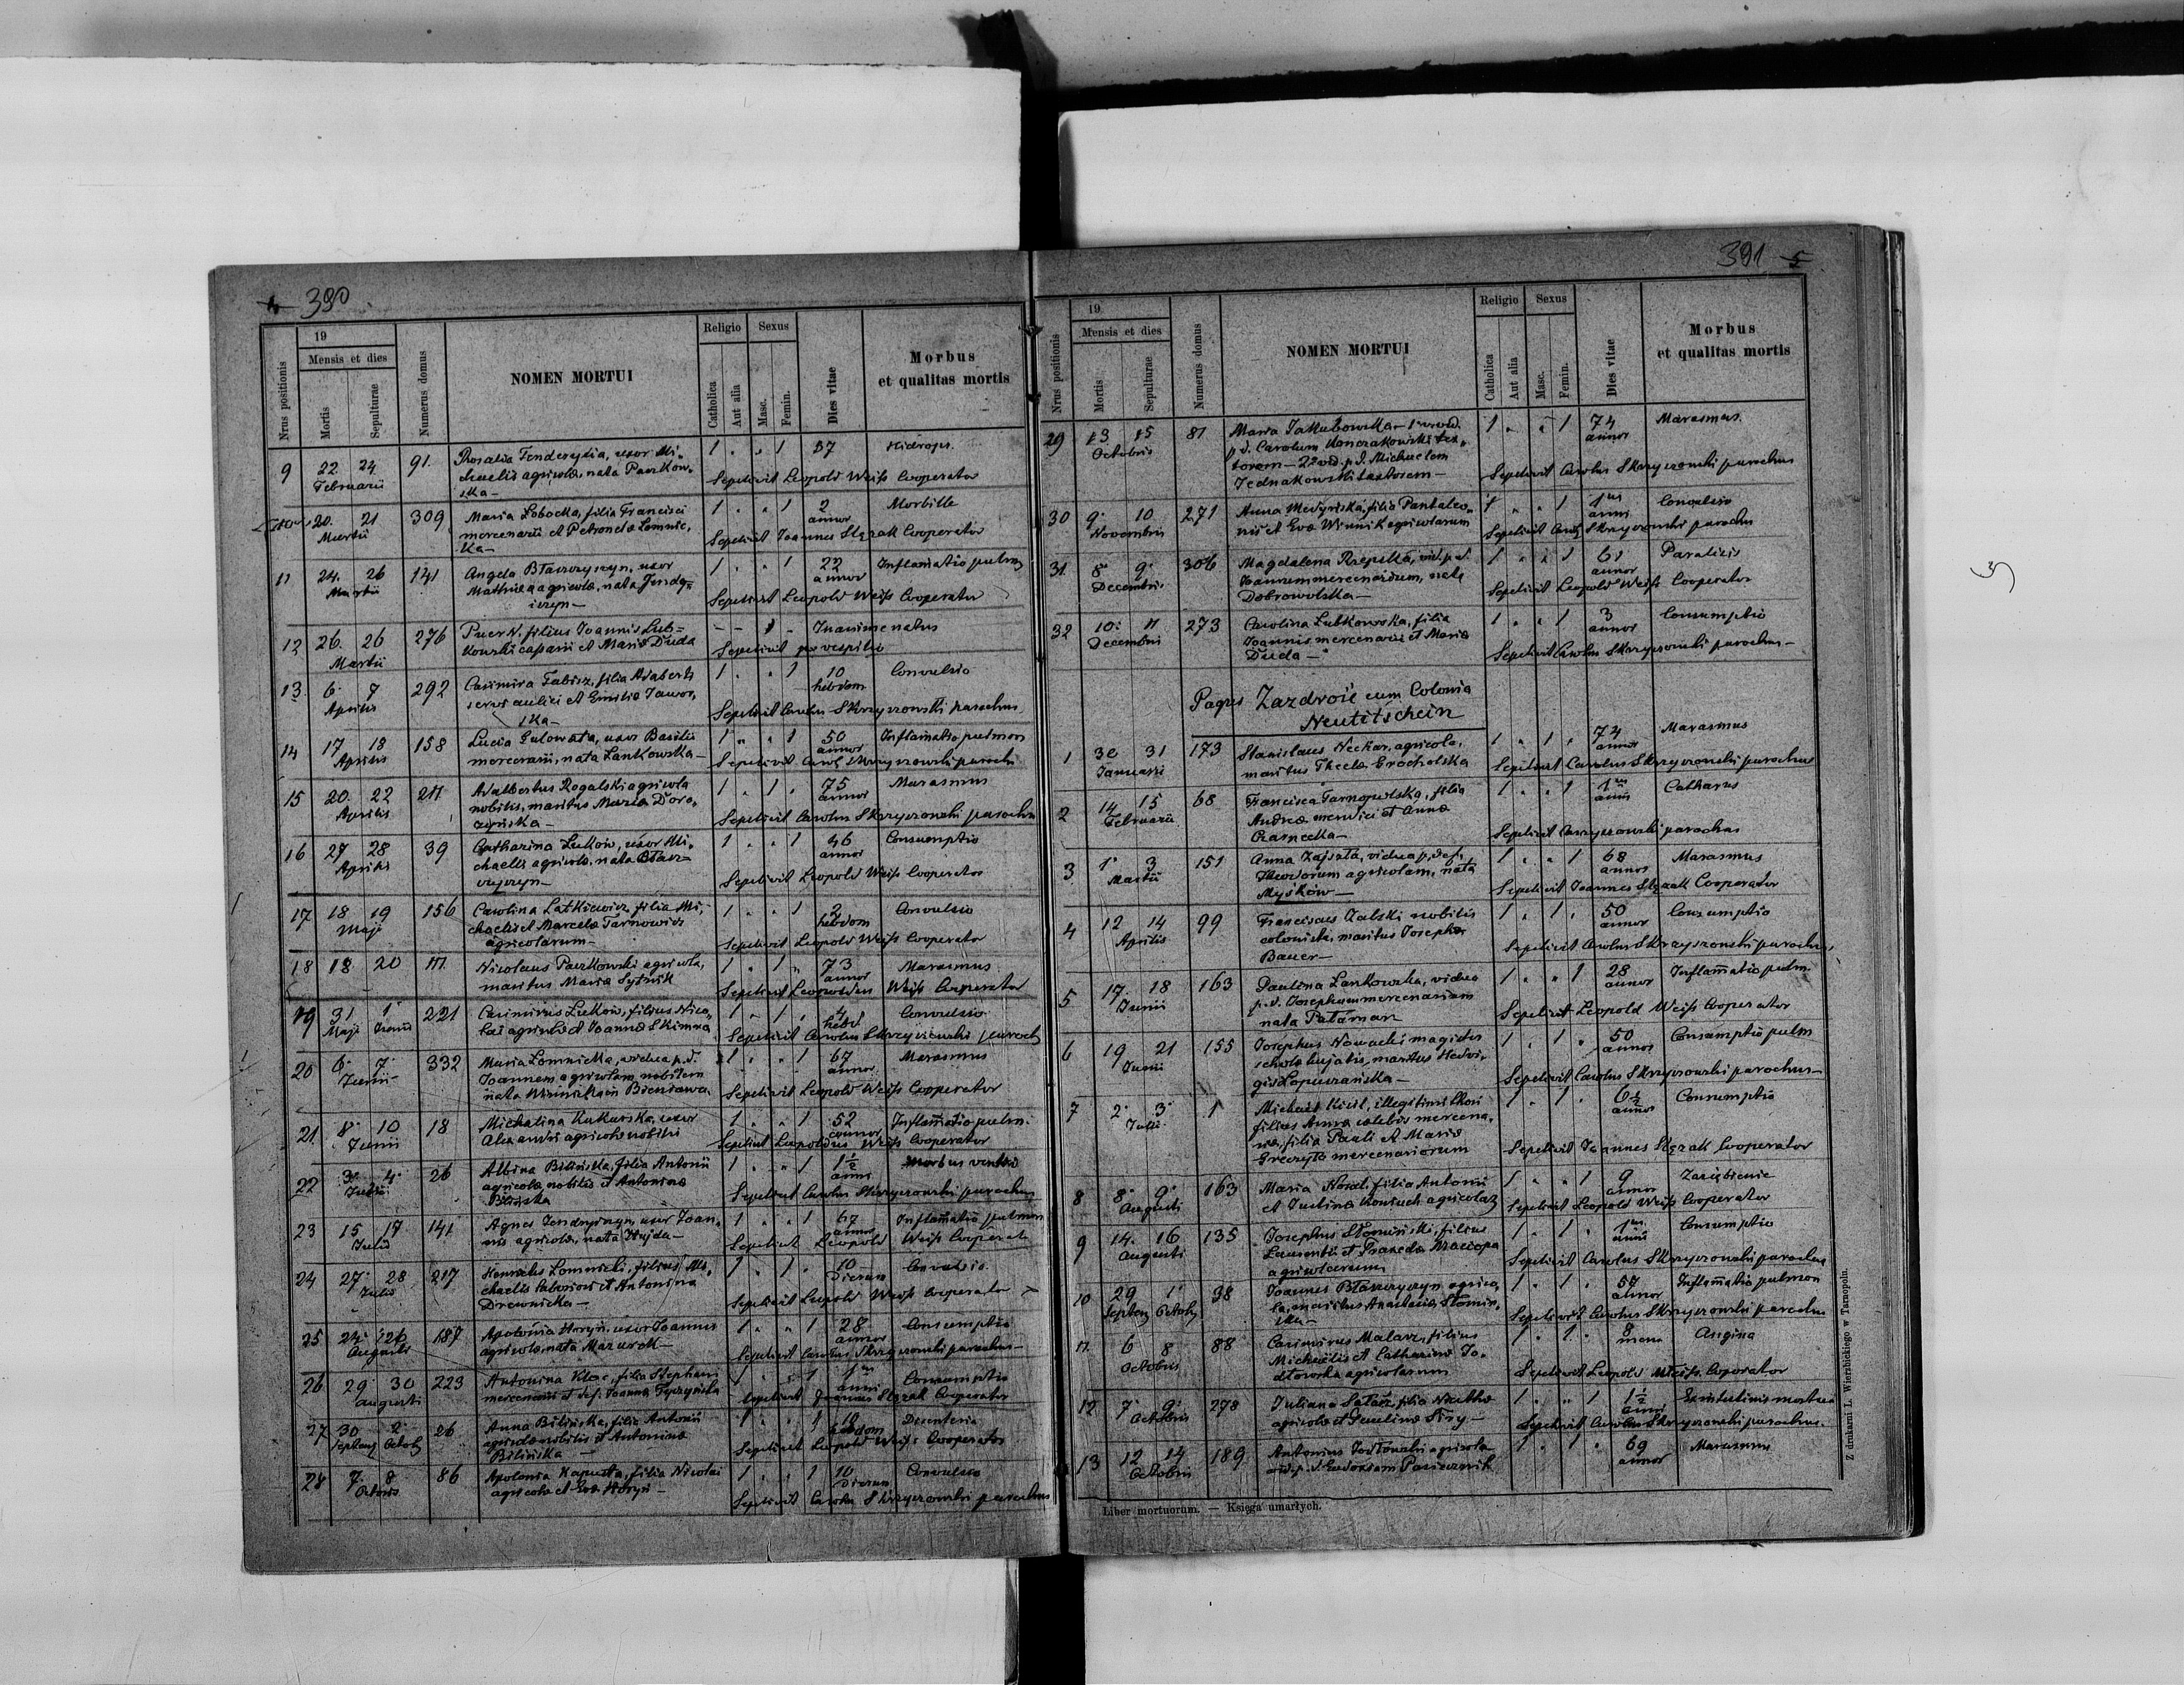 4 390
19
Mensis et dies
Nrus positionis
Mortis
Sepulturae
Numerus domus
NOMEN MORTUI
Religio
Catholica
Aut alia
Sexus
Masc.
Femin.
Dies vitae
Morbus
et qualitas mortis
9 22 24 91. Rosalia uxor Mi-
Februarii chaelis agricolæ, nata Paczkow-
ska — 1 1 37 Hidrops
Sepelivit Leopold Weiss Cooperator
20. 21 309 Maria Łobocka, filia Francisci
Martii mercenarii et Petronelæ Łomnic-
ka — 1 1 2 annor Morbille
Sepelivit Joannes Slęzak Cooperator
11 24. 26 141 Angela Błaszczyszyn, uxor
Martii Mathiæ agricolæ, nata
1 1 22 annor Inflam̄atio pulm
Sepelivit Leopold Weiss Cooperator
12 26. 26 276 Puer N. filius Joannis Lub-
Martii kowski et Mariæ Duda
1 Inanime natus
Sepelivit
13 6 7 292 Casimira filia Adalberti
Aprilis servi aulici et Emiliæ Jawor-
ska — 1 1 10 hebdom Convulsio
Sepelivit Carolus Skrzyszowski parochus
14 17 18 158 Lucia uxor Basilii
Aprilis mercenarii, nata Lankowska —
1 1 50 annor Inflam̄atio pulmon
Sepelivit Carol Skrzyszowski paroch
15 20. 22 211 Adalbertus Rogalski agricola
Aprilis nobilis, maritus Mariæ
1 1 75 annor Marasmus
Sepelivit Carolus Skrzyszowski parochus
16 27 28 39 Catharina Luków, uxor Mi-
Aprilis chaelis agricolæ, nata Błasz-
czyszyn — 1 1 46 annor Consumptio
Sepelivit Leopold Weiss Cooperator
17 18 19 156 Carolina Latkiewicz, filia Mi-
Maji chaelis et Marcelæ Tarnowicz
agricolarum — 1 1 2 hebdom Convulsio
Sepelivit Leopold Weiss Cooperator
18 18 20 111. Nicolaus Paczkowski agricola,
maritus Mariæ Sytnik
1 1 73 annor Marasmus
Sepelivit Leopoldus Weiss Cooperator
19 31 1 221 Casimirus Luków, filius Nico-
Maji Junii lai agricolæ et Joannæ Skimna
1 1 4 hebd Convulsio
Sepelivit Carolus Skrzyszowski paroch
20 6. 7. 332 Maria Łomnicka, vidua p. d.
Junii Joannem agricolam nobilem
nata
1 1 67 annor Marasmus
Sepelivit Leopold Weiss Cooperator
21 8 10 18 Michalina Kukurska, uxor
Junii Alexandri agricolæ nobilis
1 1 52 annor Inflam̄atio pulm.
Sepelivit Leopoldus Weiss Cooperator
22 3. 4. 26 Albina Bilińska, filia Antonii
Julii agricolæ nobilis et Antoninæ
Bilińska 1 1 1½ anni Morbus
Sepelivit Carolus Skrzyszowski parochus
23 15 17 141 Agnes uxor Joan-
Julii nis agricolæ, nata Hujda —
1 1 67 annor Inflam̄atio pulmon
Sepelivit Leopold Weiss Cooperat
24 27 28 217 Henricus Łomnicki, filius Mi-
Julii chaelis et Antoninæ
Drewnicka — 1 1 10 Dierum Convulsio
Sepelivit Leopold Weiss Cooperator
25 24 26 187 Apolonia Horyń, uxor Joannis
Augusti agricolæ, nata Mazurek —
1 1 28 annor Consumptio
Sepelivit Carolus Skrzyszowski parochus —
26 29 30 223 Antonina filia Stephani
Augusti mercenarii et def. Joannæ
1 1 1 anni Consumptio
Sepelivit Joannes Slęzak Cooperator
27 30 2 26 Anna Bilińska, filia Antonii
Septemb Octob agricolæ nobilis et Antoninæ
Bilińska 1 1 10 hebdom Desenteria
Sepelivit Leopold Weiss Cooperator
28 7 8 86 Apolonia Kapusta, filia Nicolai
Octobris agricolæ et Evæ Horyń —
1 1 10 Dierum Convulsio
Sepelivit Carolus Skrzyszowski parochus
391 5
19
Mensis et dies
Nrus positionis
Mortis
Sepulturae
Numerus domus
NOMEN MORTUI
Religio
Catholica
Aut alia
Sexus
Masc.
Femin.
Dies vitae
Morbus
et qualitas mortis
29 13 15 81 Maria Jakubowska —
Octobris p. d. Carolum Konczakowski tex-
torem — p. d. Michaelem
Jednakowski textorem —
1 1 74 annor Marasmus
Sepelivit Carolus Skrzyszowski parochus
30 9 10 271 Anna Medyńska, filia Pantaleo-
Novembris nis et Evæ Winnik agricolarum
1 1 1 anni Convulsio
Sepelivit Carol Skrzyszowski parochus
31 8 9 306 Magdalena Rzepska, vid. p. d.
Decembris Joannem mercenarium, nata
Dobrowolska — 1 1 61 annor Paralisis
Sepelivit Leopold Weiss Cooperator
32 10. 11 273 Carolina Lubkowska, filia
Decembris Joannis mercenarii et Mariæ
Duda — 1 1 3 annor Consumptio
Sepelivit Carolus Skrzyszowski parochus —
Pagus Zazdrość cum Colonia
Neutitschein
1 30 31 173 Stanislaus Neckar, agricola,
Januarii maritus Theclæ Grocholska
1 1 74 annor Marasmus
Sepelivit Carolus Skrzyszowski parochus
2 14 15 68 Francisca Tarnopolska, filia
Februarii Andreæ mendici et Annæ
Czarnecka — 1 1 1 anni Catharus
Sepelivit parochus
3 1 3 151 Anna Zajszła, vidua p. def.
Martii Theodorum agricolam, nata
Myśków — 1 1 68 annor Marasmus
Sepelivit Joannes Slęzak Cooperator
4 12 14 99 Franciscus Zalski nobilis
Aprilis colonista, maritus Josephæ
Bauer — 1 1 50 annor Consumptio
Sepelivit Carolus Skrzyszowski parochus
5 17. 18 163 Paulina Lankowska, vidua
Junii p. d. Josephum mercenarium
nata Pałamar 1 1 28 annor Inflam̄atio pulm.
Sepelivit Leopold Weiss Cooperator
6 19 21 155 Josephus Nowacki magister
Junii scholæ hujatis, maritus Hedvi-
gis Łopuszańska — 1 1 50 annor Consumptio pulm
Sepelivit Carolus Skrzyszowski parochus —
7 2 3 1 Michael illegitimi thori
Julii filius Annæ cœlebis mercena-
riæ, filia Pauli et Mariæ
Greczyta mercenariorum
1 1 6½ annor Consumptio
Sepelivit Joannes Slęzak Cooperator
8 8 9 163 Maria filia Antonii
Augusti et Justinæ Koniuch agricolar
1 1 9 annor Zaziębienie
Sepelivit Leopold Weiss Cooperator
9 14. 16 135 Josephus Słomiński, filius
Augusti Laurentii et Praxedæ
agricolarum 1 1 1 anni Consumptio
Sepelivit Carolus Skrzyszowski parochus
10 29 1 38 Joannes Błaszczyszyn agrico-
Septemb Octob la, maritus Anastasiæ Słomiń-
ska — 1 1 57 annor Inflam̄atio pulmon
Sepelivit Carolus Skrzyszowski parochus
11. 6 8 88 Casimirus Malarz, filius
Octobris Michaelis et Catharinæ Jo-
dłowska agricolarum 1 1 8 mens Angina
Sepelivit Leopold Weiss Cooperator
12 7 9 278 Juliana filia
Octobris agricolæ et
1 1 1½ anni
Sepelivit Carolus Skrzyszowski parochus.
13 12 14 189 Antonius Jodłowski agricola
Octobris
1 1 69 annor Marasmus
Liber mortuorum. — Księga umarłych.
Z drukarni L. Wierzbickiego w Tarnopolu.